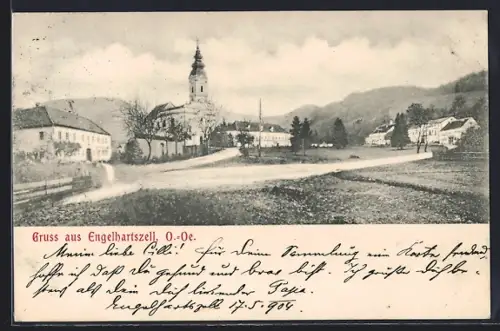 Gruss aus Engelhartszell, O.-Oe.
Meine liebe Cilli! Für Deine Sammlung eine Karte sendend
hoffe ich daß Du gesund und brav bist. Ich grüße Dich be-
stens als Dein Dich liebender Papa.
Engelhartszell 17.5.904